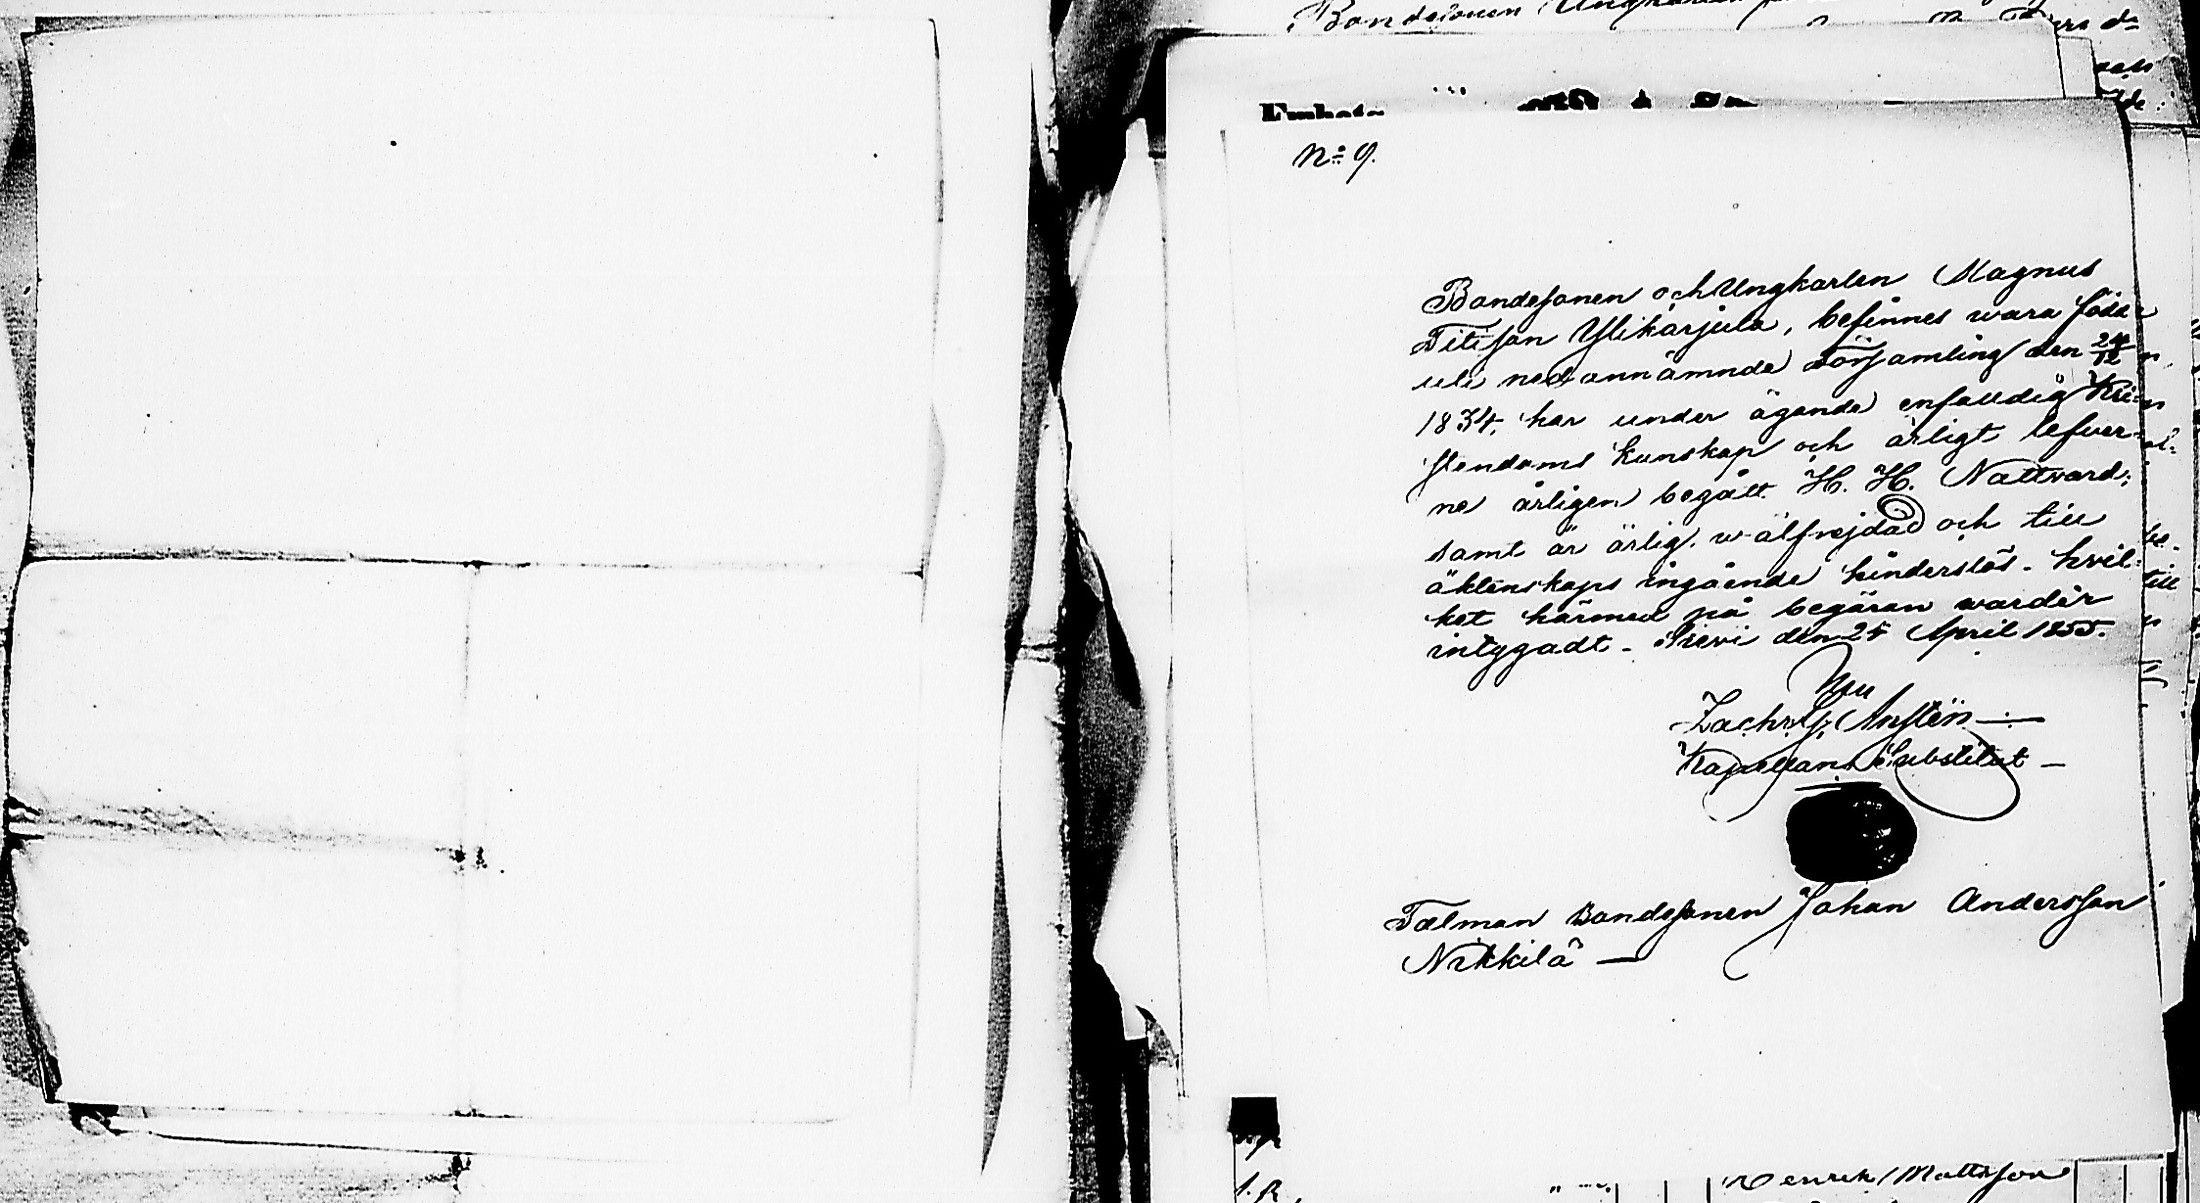 Bondesonen
No 9.
Bondesonen och Ungkarlen Magnus
Titisson Ylikarjula, befinnes wara född
uti nedannämnde Församling den 24/12
1834, har under ägande enfaldig Kri-
stendoms kunskap och ärligt lefver-
ne årligen begått H. H. Nattvard,
samt är ärlig, wälfrejdad och till
äktenskaps ingående hinderslös - hvil-
ket härmed på begäran warder
intygadt - Sievi den 25 April 1855.
Zachr. G.
Kapellans Substitut -
Talman Bondesonen Johan Andersson
Nikkilä -
Henrik Mattsson